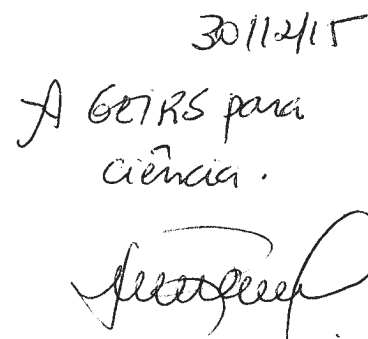 30/12/15
A GETRS para
ciência.